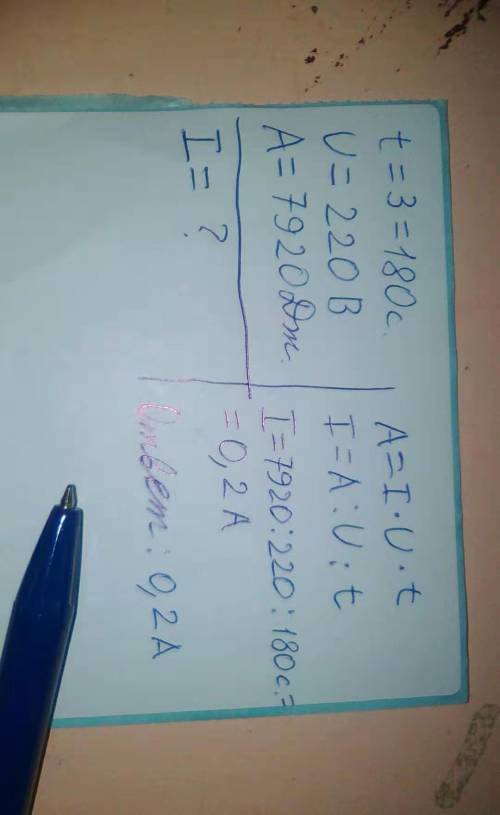 t = 3 = 180 с.
U = 220 В
A = 7920 Дж.
I = ?
A = I · U · t
I = A : U : t
I = 7920 : 220 : 180 с. =
= 0,2 A
Ответ : 0,2 A